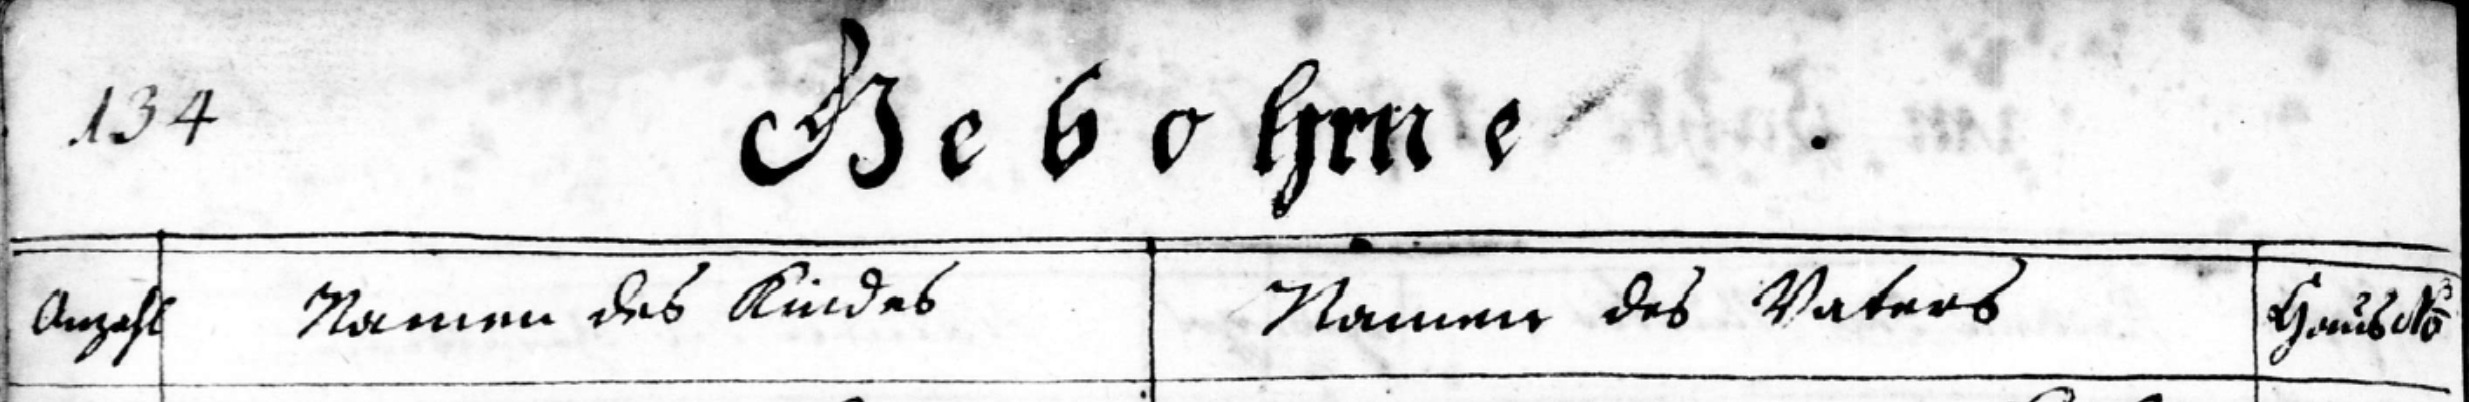 134
Gebohrne
Anzahl Namen des Kindes Namen des Vaters Haus No